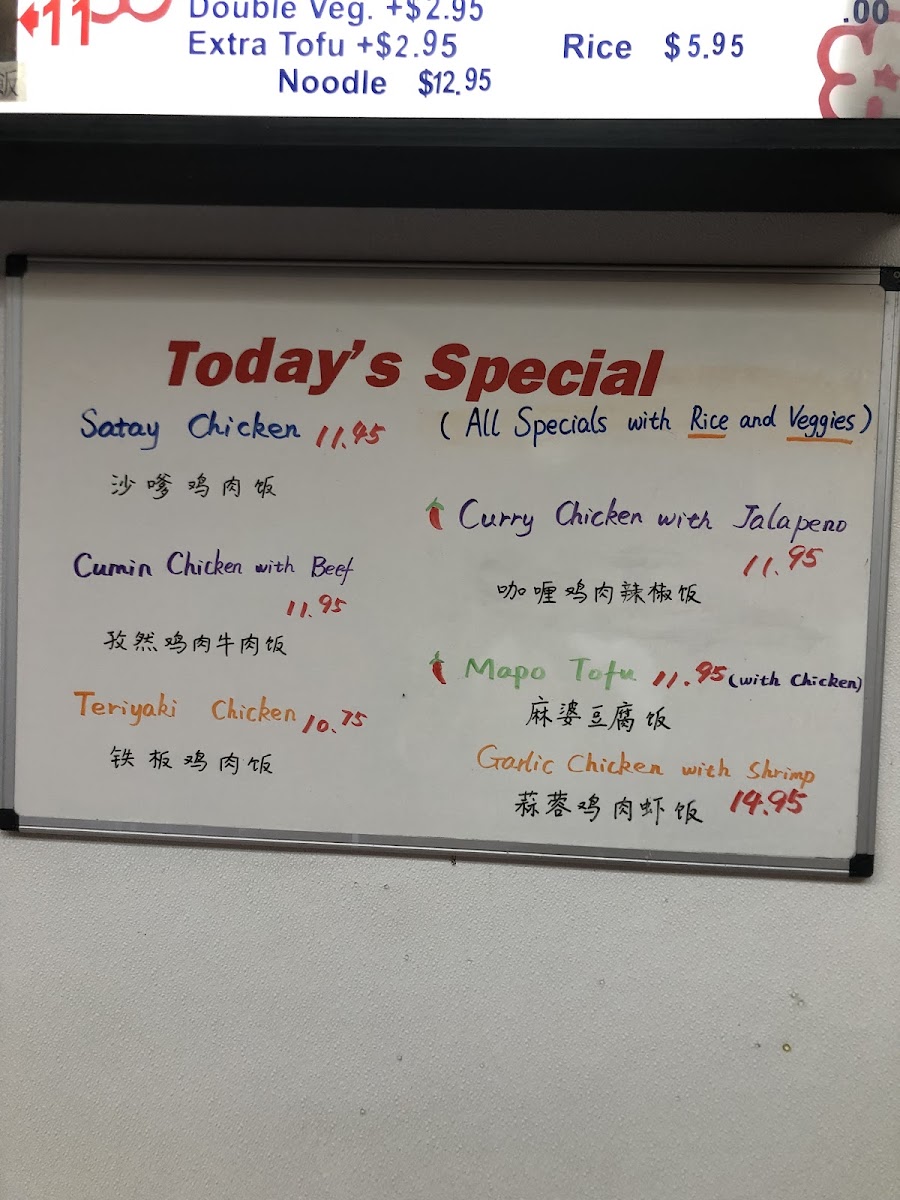 11
Double Veg. +$2.95
.00
Extra Tofu +$2.95 Rice $5.95
Noodle $12.95
饭
Today's Special
Satay Chicken 11.45
(All Specials with Rice and Veggies)
沙嗲鸡肉饭
Curry Chicken with Jalapeno
11.95
咖喱鸡肉辣椒饭
Cumin Chicken with Beef
11.95
孜然鸡肉牛肉饭
Mapo Tofu 11.95 (with Chicken)
麻婆豆腐饭
Teriyaki Chicken 10.75
铁板鸡肉饭
Garlic Chicken with Shrimp
蒜蓉鸡肉虾饭 14.95